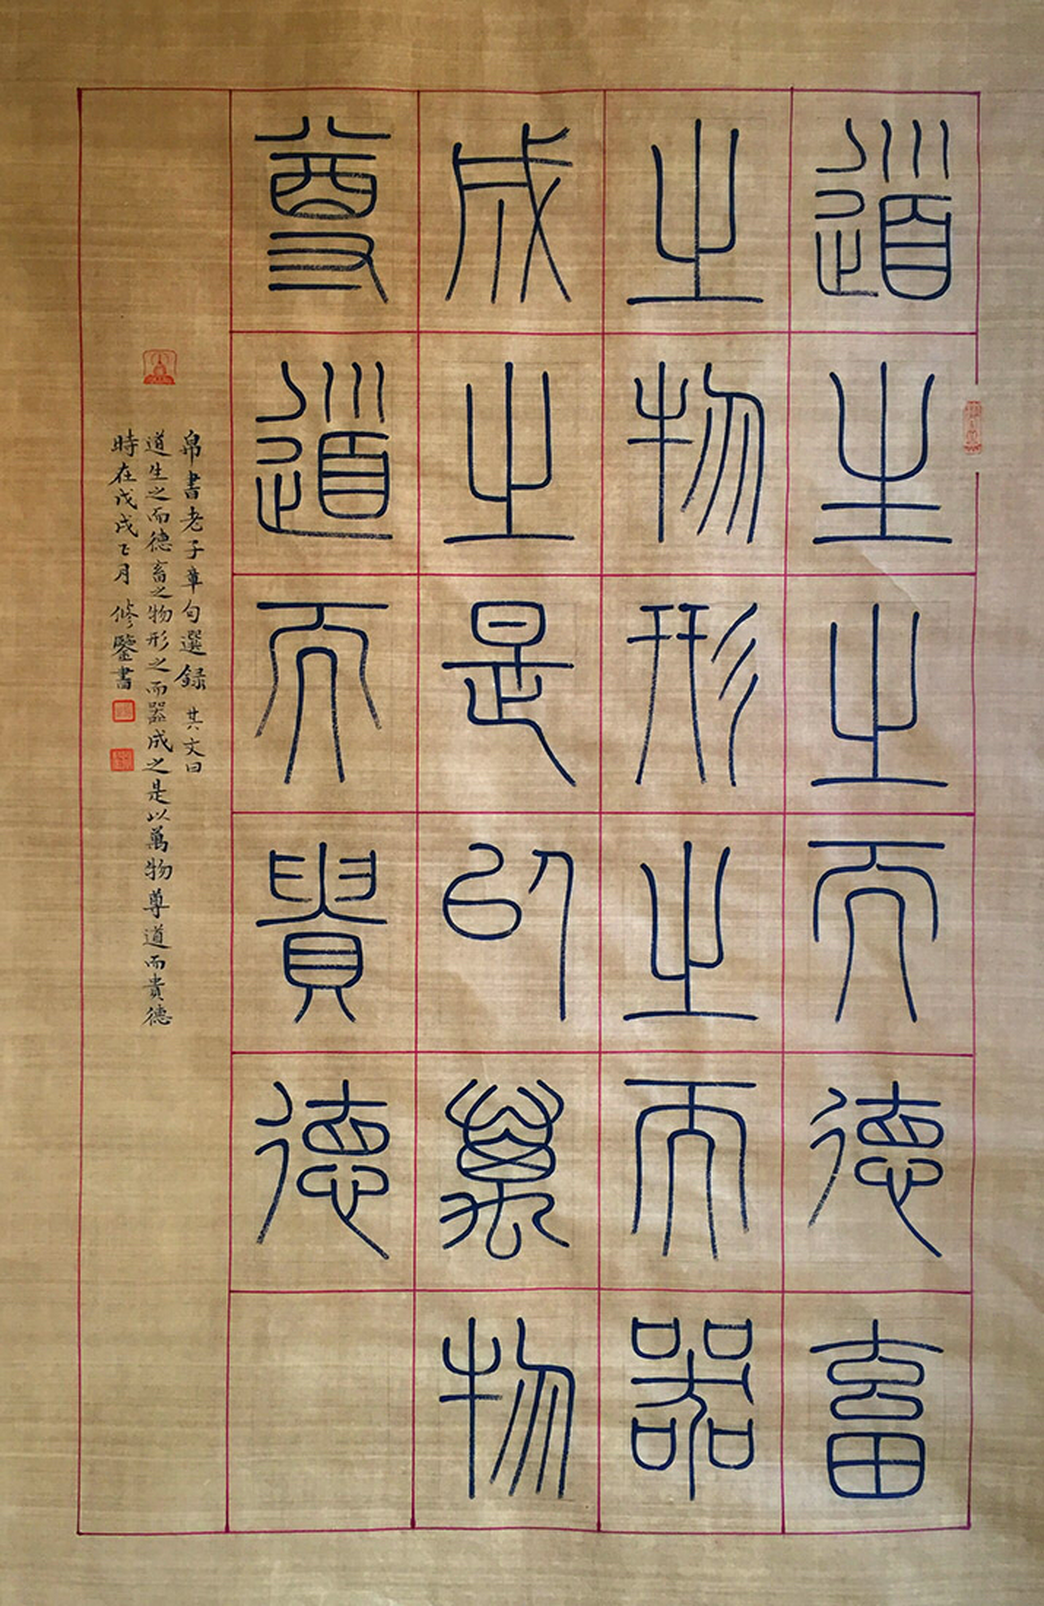 道生之而德畜
之物形之而器
成之是以萬物
尊道而貴德
帛書老子章句選録 其文曰
道生之而德畜之物形之而器成之是以萬物尊道而貴德
時在戊戌乙月 修鑒書